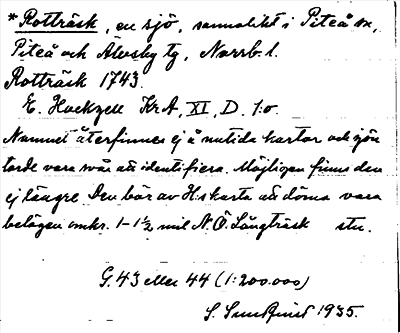 * Rotträsk, en sjö, sannolikt i Piteå sn,
Piteå och Älvsby tg, Norrb. l.
Rotträsk 1743.
E. Hackzell KrA, XI, D. 1:o.
Namnet återfinnes ej å nutida kartor och sjön
torde vara svår att identifiera. Möjligen finns den
ej längre. Den bör av H:s karta att döma vara
belägen omkr. 1-1½ mil N.Ö. Långträsk stn.
G. 43 eller 44 (1:200.000)
S. Sundqvist 1935.